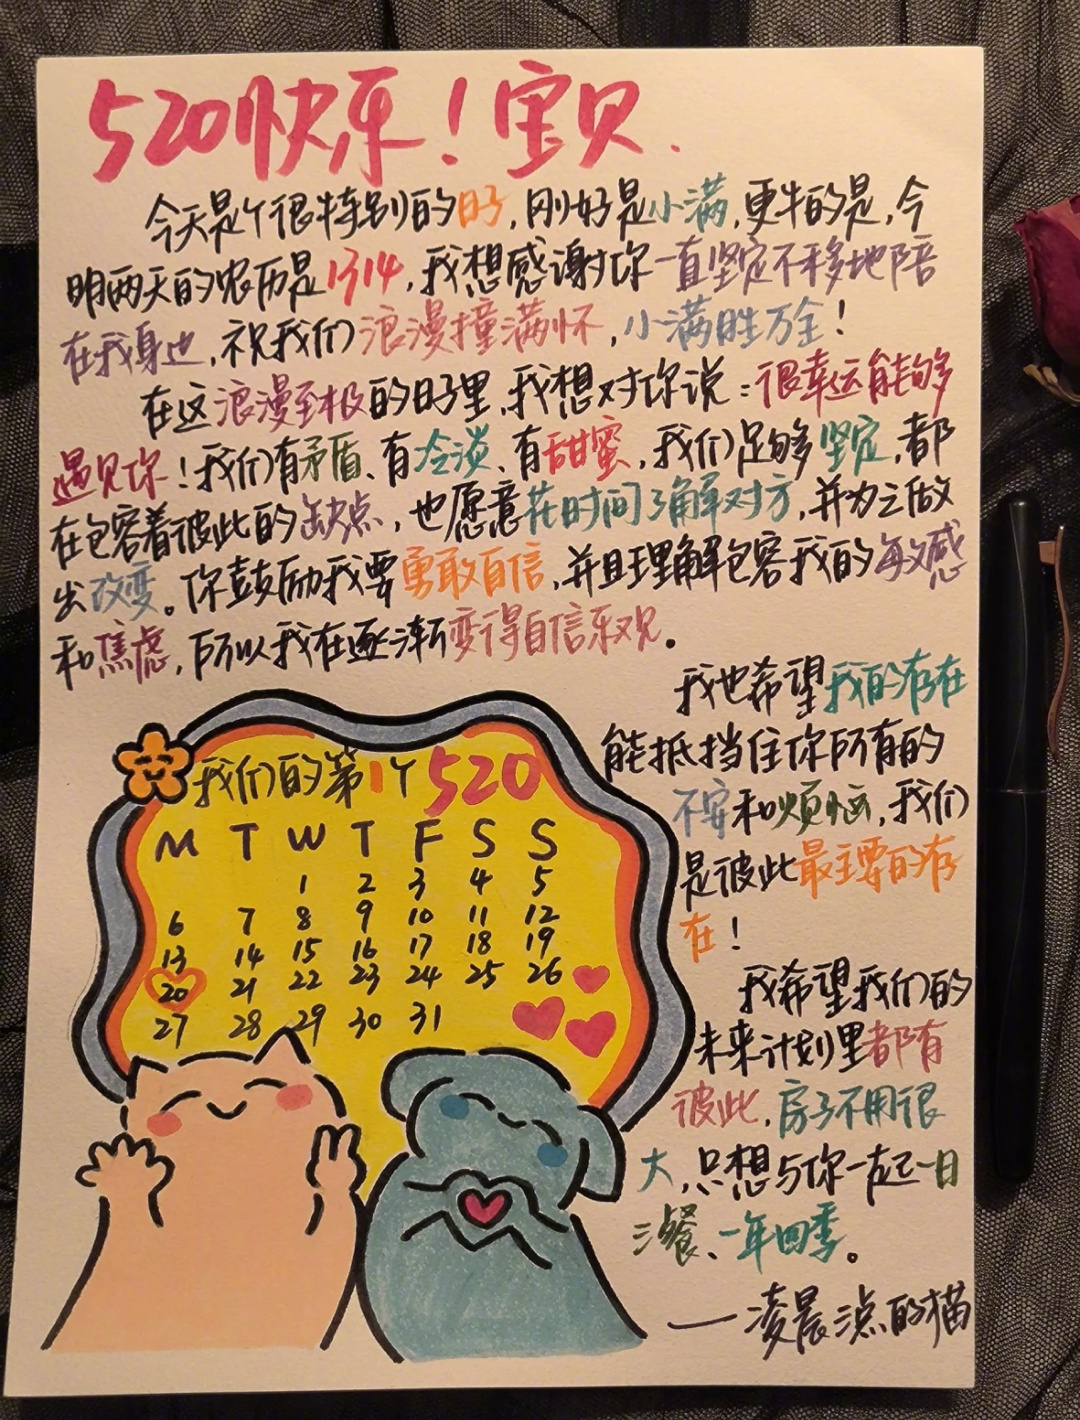 520快乐！宝贝.
今天是个很特别的日子,刚好是小满,更牛的是,今
明两天的农历是1314,我想感谢你一直坚定不移地陪
在我身边,祝我们浪漫撞满怀,小满胜万全！
在这浪漫至极的日子里,我想对你说：很幸运能够
遇见你！我们有矛盾、有冷淡、有甜蜜,我们足够坚定,都
在包容着彼此的缺点,也愿意花时间了解对方,并为之做
出改变。你鼓励我要勇敢自信,并且理解包容我的敏感
和焦虑,所以我在逐渐变得自信乐观。
我也希望我的存在
能抵挡住你所有的
不安和烦恼,我们
是彼此最主要的存
在！
我希望我们的
未来计划里都有
彼此,房子不用很
大,只想与你一起一日
三餐、一年四季。
——凌晨三点的猫
我们的第1个520
M T W T F S S
1 2 3 4 5
6 7 8 9 10 11 12
13 14 15 16 17 18 19
20 21 22 23 24 25 26
27 28 29 30 31